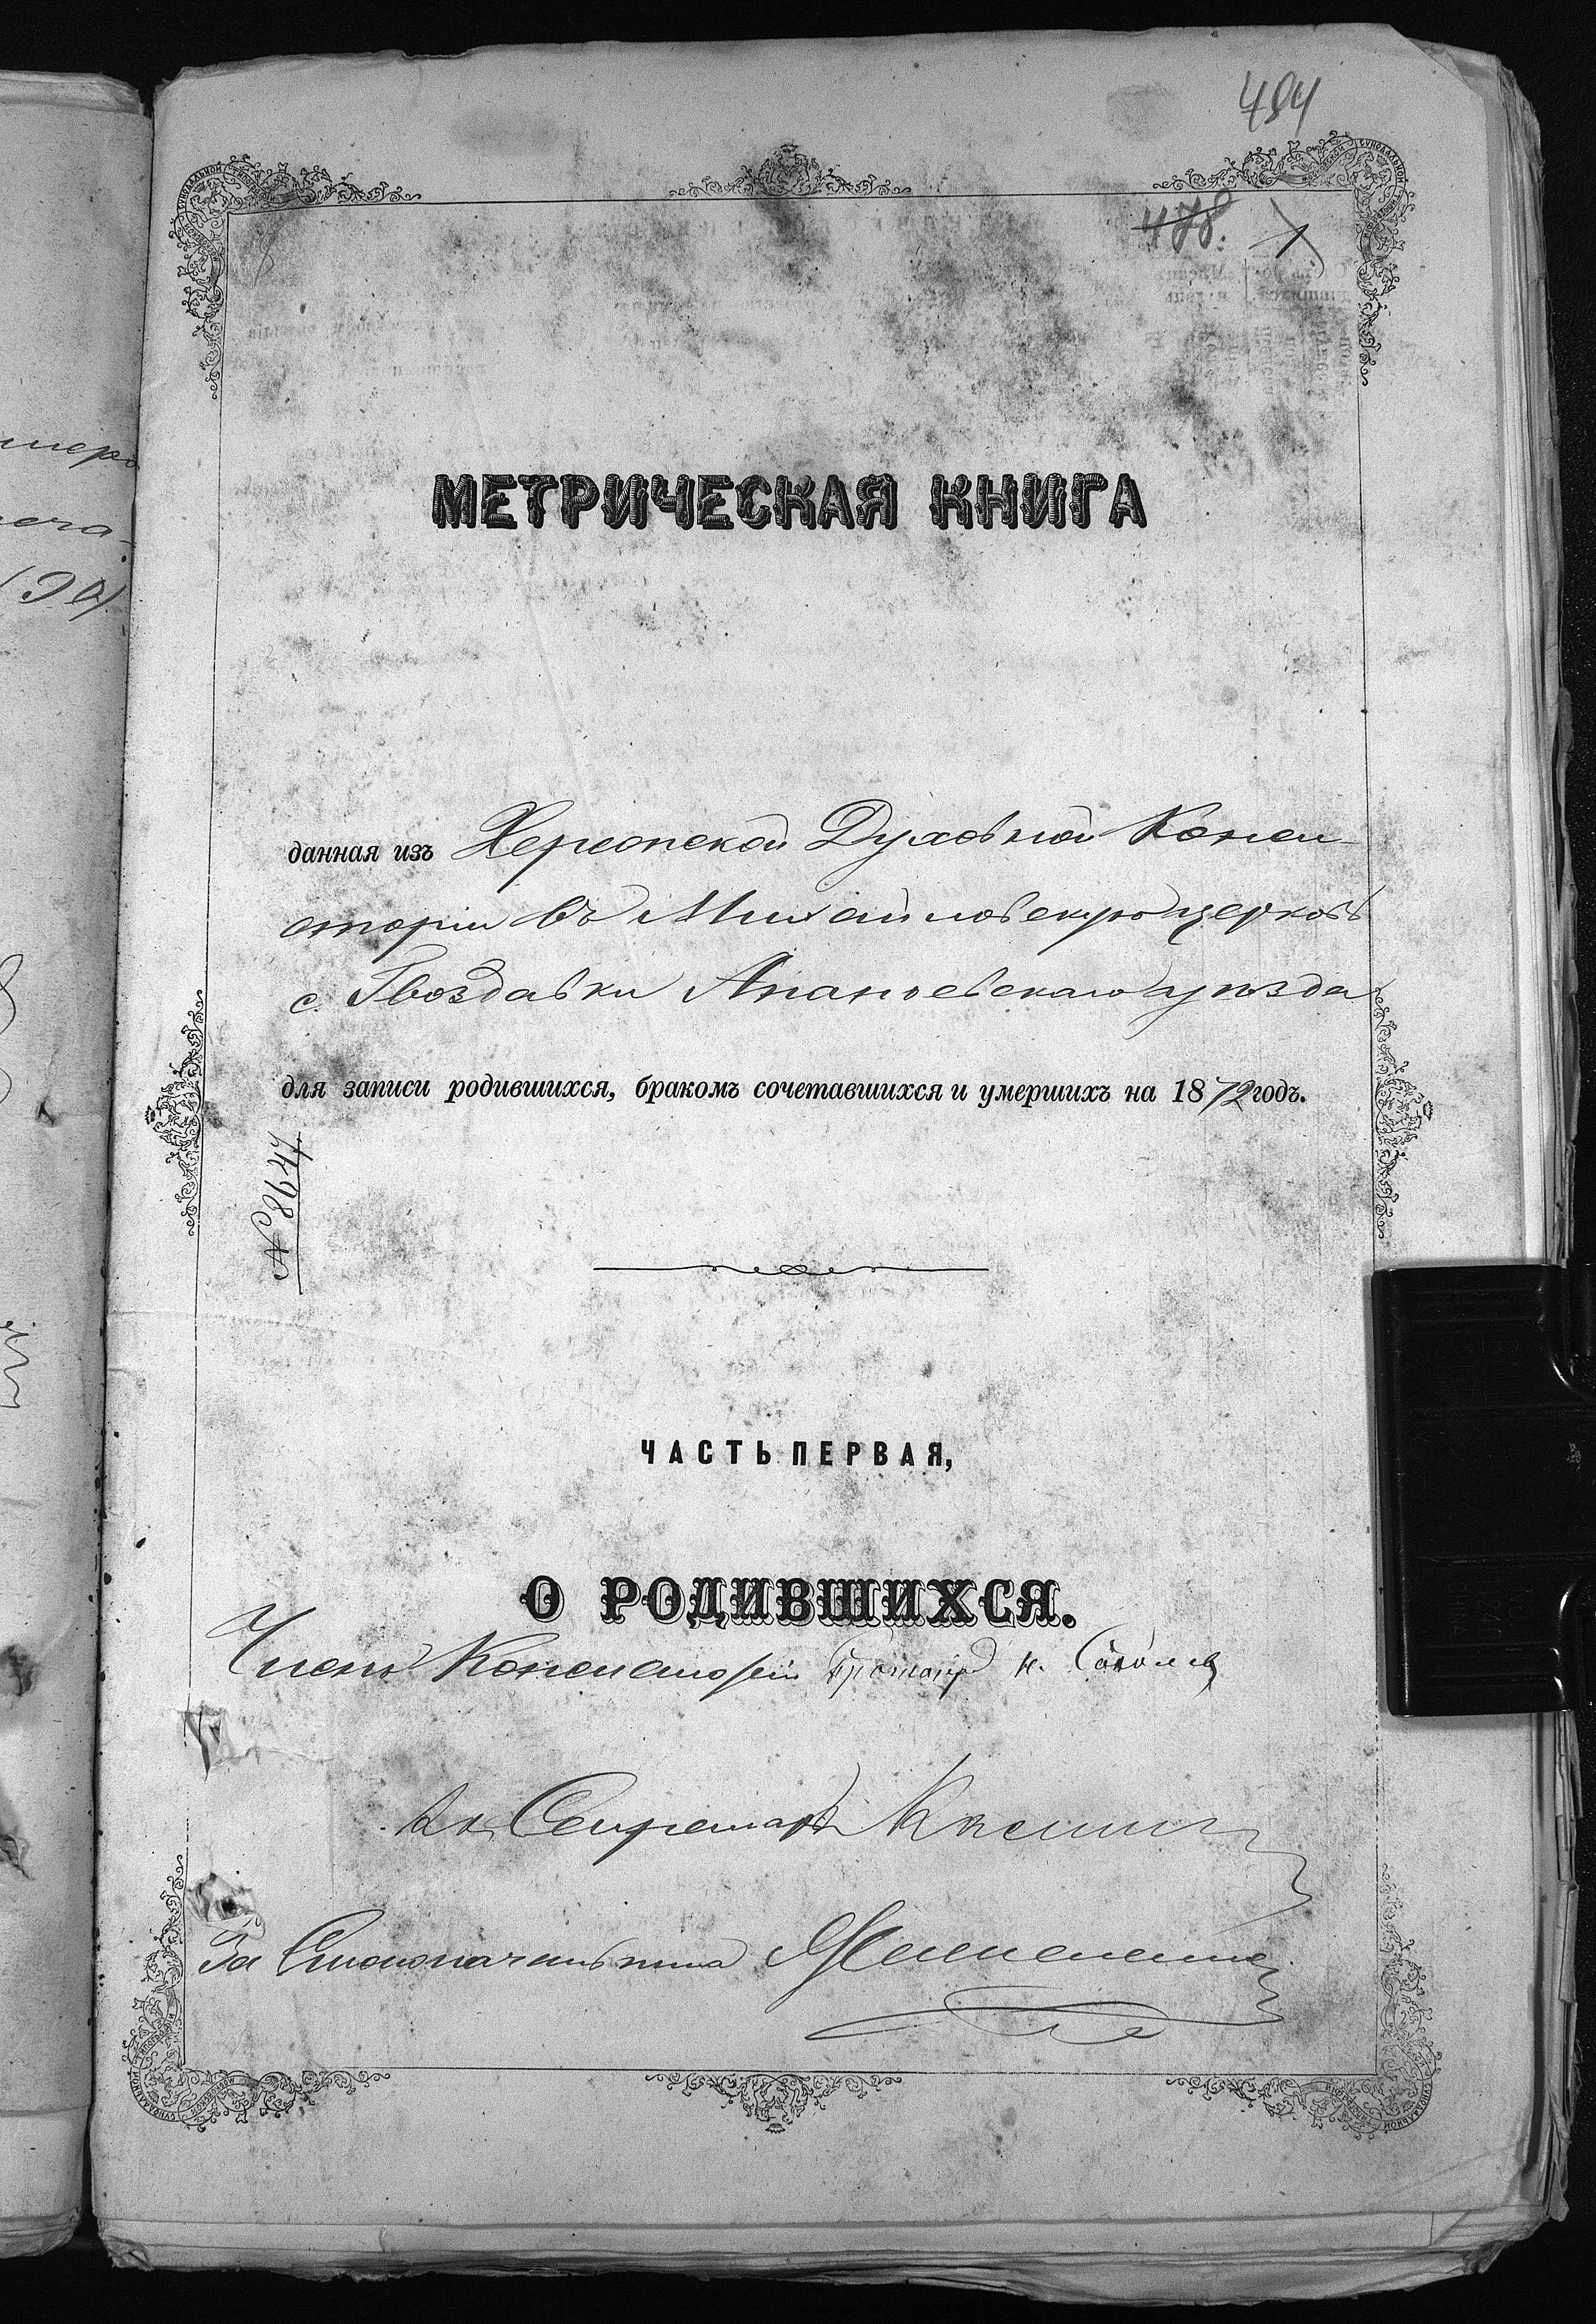 494
478.
МЕТРИЧЕСКАЯ КНИГА
данная изъ Херсонской Духовной Конси-
сторіи въ Михайловскую церковь
с. Гвоздавки Ананьевскаго уѣзда
для записи родившихся, бракомъ сочетавшихся и умершихъ на 1872 годъ.
№ 9844
ЧАСТЬ ПЕРВАЯ,
О РОДИВШИХСЯ.
Членъ Консисторіи
Секретарь
За Столоначальника